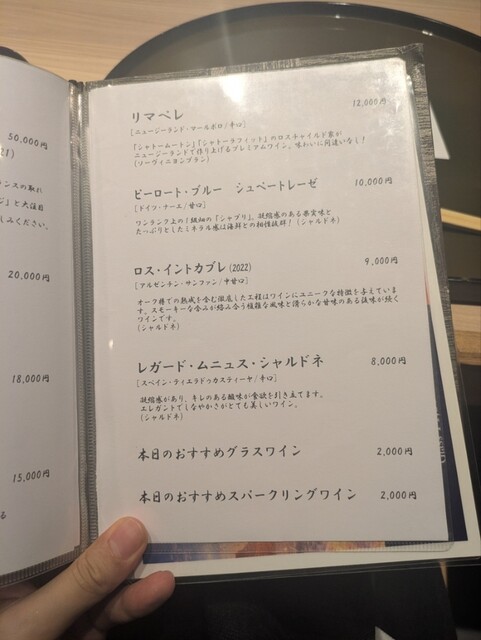 50,000円
21)
ンスの取れ
」と大注目
しみください。
20,000円
18,000円
15,000円
る
リマペレ 12,000円
[ニュージーランド・マールボロ/辛口]
「シャトームートン」「シャトーラフィット」のロスチャイルド家が
ニュージーランドで作り上げるプレミアムワイン。味わいに間違いなし!
(ソーヴィニヨンブラン)
ピーロート・ブルー シュペートレーゼ 10,000円
[ドイツ・ナーエ/甘口]
ワンランク上の1級畑の「シャブリ」。凝縮感のある果実味と
たっぷりとしたミネラル感は海鮮との相性抜群! (シャルドネ)
ロス・イントカブレ(2022) 9,000円
[アルゼンチン・サンファン/中甘口]
オーク樽での熟成を含む徹底した工程はワインにユニークな特徴を与えていま
す。スモーキーな含みが絡み合う複雑な風味と滑らかな甘味のある後味が続く
ワインです。
(シャルドネ)
レガード・ムニュス・シャルドネ 8,000円
[スペイン・ティエラドゥカスティーヤ/辛口]
凝縮感があり、キレのある酸味が食欲を引き立てます。
エレガントでしなやかさがとても美しいワイン。
(シャルドネ)
本日のおすすめグラスワイン 2,000円
本日のおすすめスパークリングワイン 2,000円